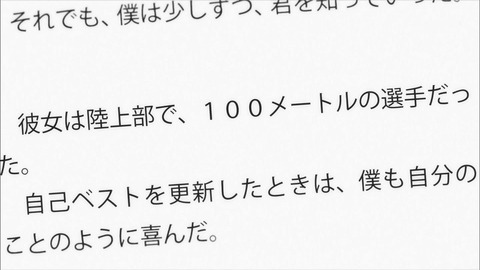 それでも、僕は少しずつ、君を知っていった。
彼女は陸上部で、１００メートルの選手だっ
た。
自己ベストを更新したときは、僕も自分の
ことのように喜んだ。